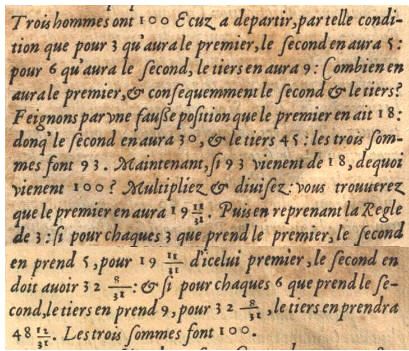 Trois hommes ont 100 Ecuz a departir, par telle condi-
tion que pour 3 qu'aura le premier, le ſecond en aura 5:
pour 6 qu'aura le ſecond, le tiers en aura 9: Combien en
aura le premier, & conſequemment le ſecond & le tiers?
Feignons par vne faußе poſition que le premier en ait 18:
donq' le ſecond en aura 30, & le tiers 45: les trois ſom-
mes font 93. Maintenant, ſi 93 vienent de 18, de quoi
vienent 100? Multipliez & diuiſez: vous trouuerez
que le premier en aura 19 11/31. Puis en reprenant la Regle
de 3: ſi pour chaques 3 que prend le premier, le ſecond
en prend 5, pour 19 11/31 d'icelui premier, le ſecond en
doit auoir 32 8/31: & ſi pour chaques 6 que prend le ſe-
cond, le tiers en prend 9, pour 32 8/31, le tiers en prendra
48 12/31. Les trois ſommes font 100.